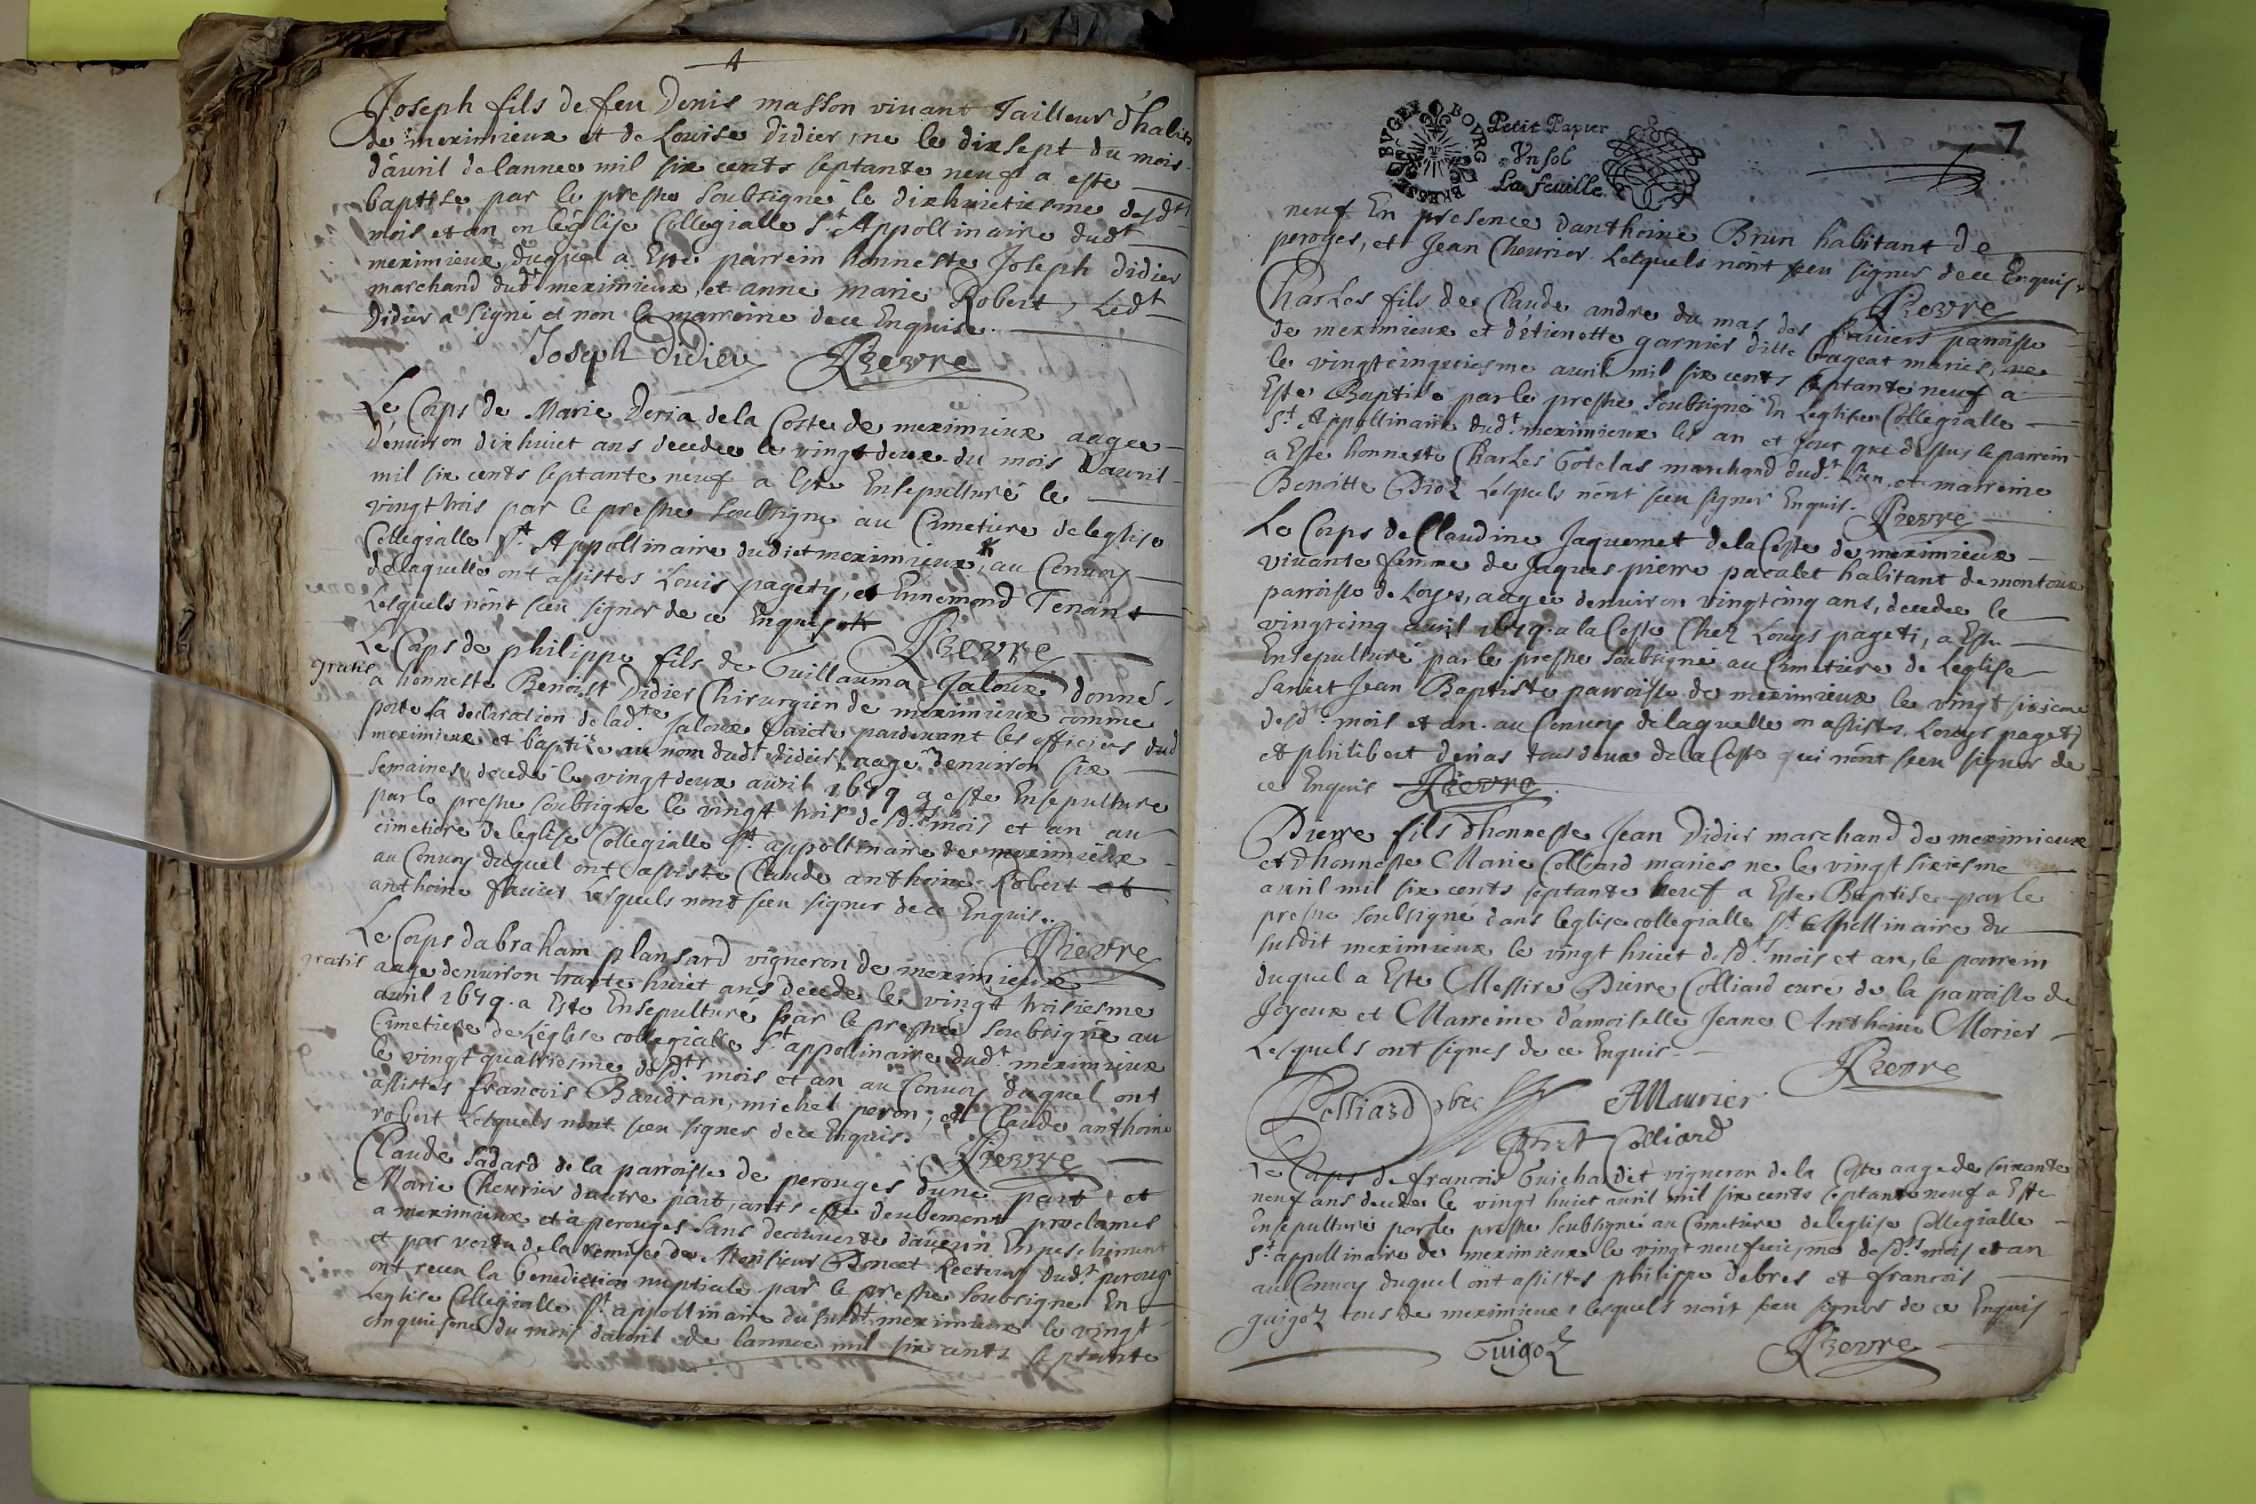 Joseph fils de feu Denis masson vivant Tailleur d'habits
de meximieux et de Louise Didier, ne le dixsept du mois
d'auril de lannee mil six cents septante neuf a este
baptise par le prestre soubsigné le dixhuictiesme desdts
mois et an en léglise Collegialle St Appollinaire dudt
meximieux, duquel a Esté parrein honneste Joseph Didier
marchand dudt meximieux, et anne marie Robert, Ledt
Didier a signé et non la marreine de ce Enquise.
Joseph Didier
Le Corps de Marie Deria de la Coste de meximieux aagee
d'enuiron dixhuict ans decedee le vingtdeux du mois d'auril
mil six cents septante neuf a Este Ensepulturé le
vingttrois par le prestre soubsigné au Cimetiere de leglise
Collegialle St Appollinaire dudict meximieux, au Conuoy
de laquelle ont assistes Louis pagety, et Ennemond Tenant
Lesquels n'ont sceu signer de ce Enquis
Le Corps de philippe fils de Guillauma Jaloux donné
gratis
a honneste Benoist Didier Chirurgien de meximieux comme
porte la declaration de ladte Jaloux faicte pardeuant les officiers dud
meximieux et baptizé au nom dudt Didier, aage d'enuiron six
semaines, decedé le vingtdeux auril 1679 a este Ensepulturé
par le prestre soubsigné le vingt trois desdts mois et an au
cimetiere de leglise Collegialle St appollinaire de meximieux
au Conuoy duquel ont assisté Claude anthoine Robert et
anthoine flauier Lesquels nont sceu signer de ce Enquis.
Le Corps dabraham plansard vigneron de meximieux
gratis
aage denuiron trante huict ans decede le vingt troisiesme
auril 1679. a Esté Ensepulturé par le prestre soubsigné au
Cimetiere de Léglise collegialle St appollinaire dudt meximieux
le vingtquatriesme desdts mois et an au Conuoy duquel ont
assistes francois Baudran, michel peron, et Claude anthoine
robert Lesquels nont sceu signer de ce Enquis.
Claude sadard de la parroisse de perouges dune part, et
Marie Cheurier dautre part, ants este deubement proclames
a meximieux et a perouges sans decouuerte daucun Enpeschement
et par vertu de la remise de Monsieur Poncet Recteur dudt peroug
ont receu la benediction nuptiale par le prestre soubsigné En
Leglise Collegialle St appollinaire du susdt meximieux le vingt
cinquiesme du mois dauril de lannee mil six cents septante
7
BRESSE BVGEY BOVRG
Petit Papier
Vn sol
La feuille
neuf En presence danthoine Brun habitant de
peroges, et Jean Cheurier Lesquels n'ont sceu signer de ce Enquis.
Charles fils de Claude andre du mas des flauiers parroisse
de meximieux et d'étienette garnier ditte Crageat maries, ne
le vingtcinquiesme auril mil six cents septante neuf a
Este Baptisé par le prestre soubsigné En Léglise Collegialle
St Appollinaire dudt meximieux les an et jour que dessus le parrein
a Esté honneste Charles Gotelas marchand dudt Lieu et marreine
Benoitte Didz Lesquels n'ont sceu signer Enquis.
Le Corps de Claudine Jaquemet de la Coste de meximieux
viuante femme de Jaques pierre pacalet habitant de montoux
parroisse de Loyes, aagee denuiron vingtcinq ans, decedee le
vingtcinq auril 1679. a la Coste Chez Louys pageti, a Esté
Ensepulturé par le prestre soubsigné au Cimetiere de Leglise
sainct Jean Baptiste parroisse de meximieux le vingt sixiesme
desdts mois et an. au Conuoy de laquelle on assistes Louys pageti
et philibert derias tous deux de la Coste qui n'ont sceu signer de
ce Enquis
Pierre fils d'honneste Jean Didier marchand de meximieux
et d'honneste Marie Colliard maries ne le vingt sixiesme
auril mil six cents septante neuf a Este Baptise par le
prestre soubsigné dans leglise collegialle St Appollinaire du
susdit meximieux le vingt huict desdts mois et an, le parrein
duquel a Esté Messire Pierre Colliard curé de la parroisse de
Joyeux et Marreine d'amoiselle Jeane Anthoine Morier
Lesquels ont signes de ce Enquis
Colliard
AMaurier
Colliard
Le Corps de francois Guichardet vigneron de la Coste aage de soixante
neuf ans decede le vingt huict auril mil six cents septante neuf a Este
Ensepulturé par le prestre soubsigné au Cimetiere de leglise Collegialle
St appollinaire de meximieux le vingt neufuiesme desdts mois et an
au Conuoy duquel ont assistes philippe debres et francois
guigoz tous de meximieux lesquels n'ont sceu signer de ce Enquis
Guigoz